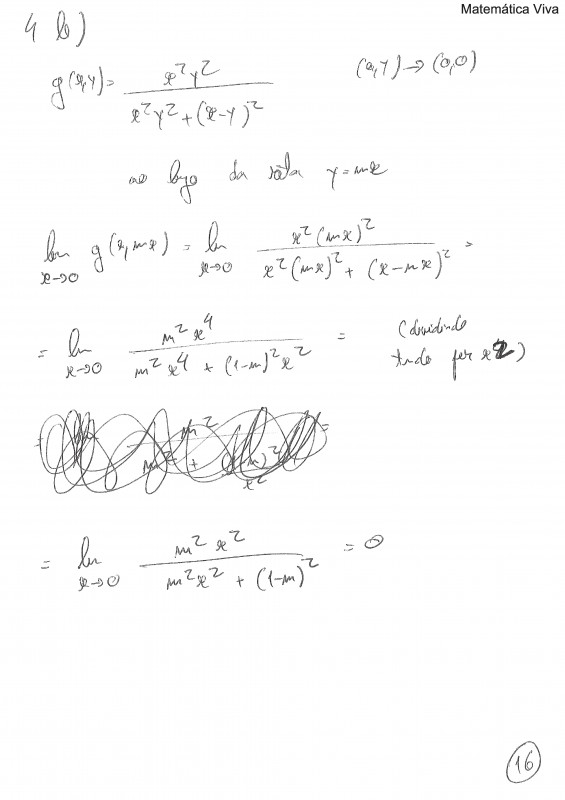 Matemática Viva
4 b)
g(x,y) = x²y² / (x²y² + (x-y)²) (x,y) → (0,0)
ao longo da reta y=mx
lim x→0 g(x,mx) = lim x→0 x²(mx)² / (x²(mx)² + (x-mx)²) =
= lim x→0 m²x⁴ / (m²x⁴ + (1-m)²x²) = (dividindo
tudo por x²)
= lim x→0 m²x² / (m²x² + (1-m)²) = 0
16